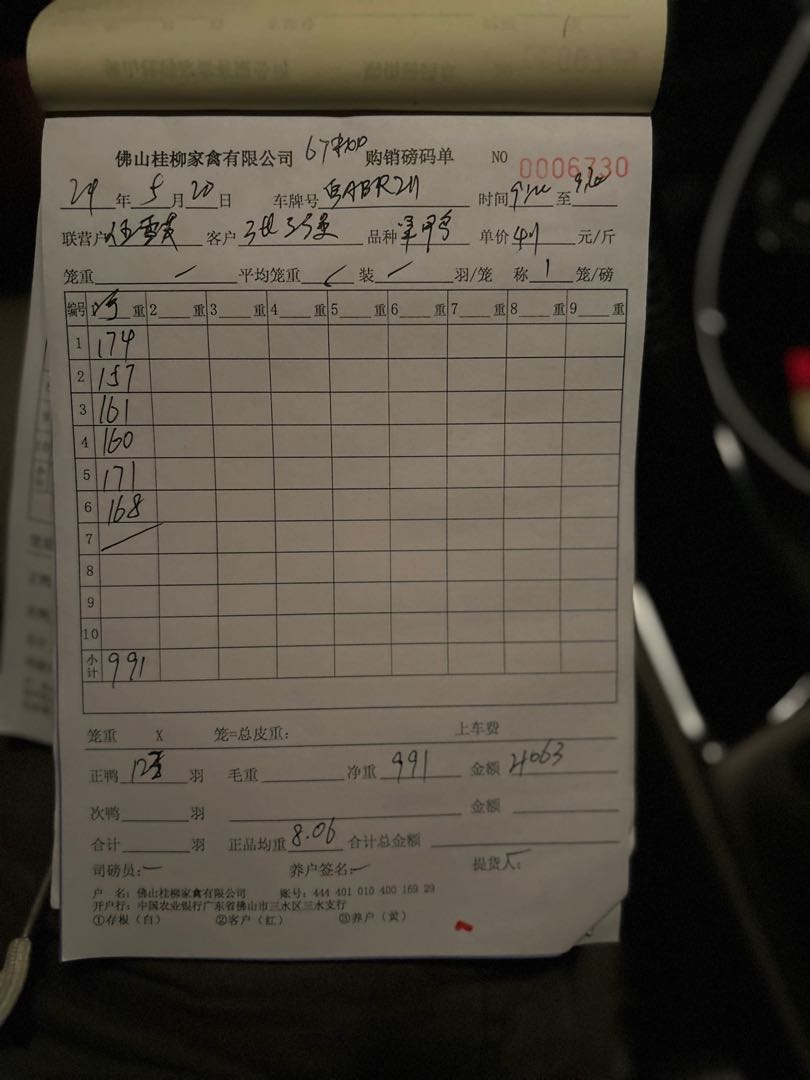 佛山桂柳家禽有限公司 购销磅码单 NO 0006730
24 年 5 月 20 日 车牌号 ABR211 时间 至
联营户 客户 品种 单价 4.1 元/斤
笼重 平均笼重 装 羽/笼 称 1 笼/磅
编号 1 重 2 重 3 重 4 重 5 重 6 重 7 重 8 重 9 重
1 174
2 157
3 161
4 160
5 171
6 168
7
8
9
10
小计 991
笼重 X 笼=总皮重: 上车费
正鸭 羽 毛重 净重 991 金额 4063
次鸭 羽 金额
合计 羽 正品均重 8.06 合计总金额
司磅员: 养户签名: 提货人:
户 名: 佛山桂柳家禽有限公司 账号: 444 401 010 400 169 29
开户行: 中国农业银行广东省佛山市三水区三水支行
①存根(白) ②客户(红) ③养户(黄)